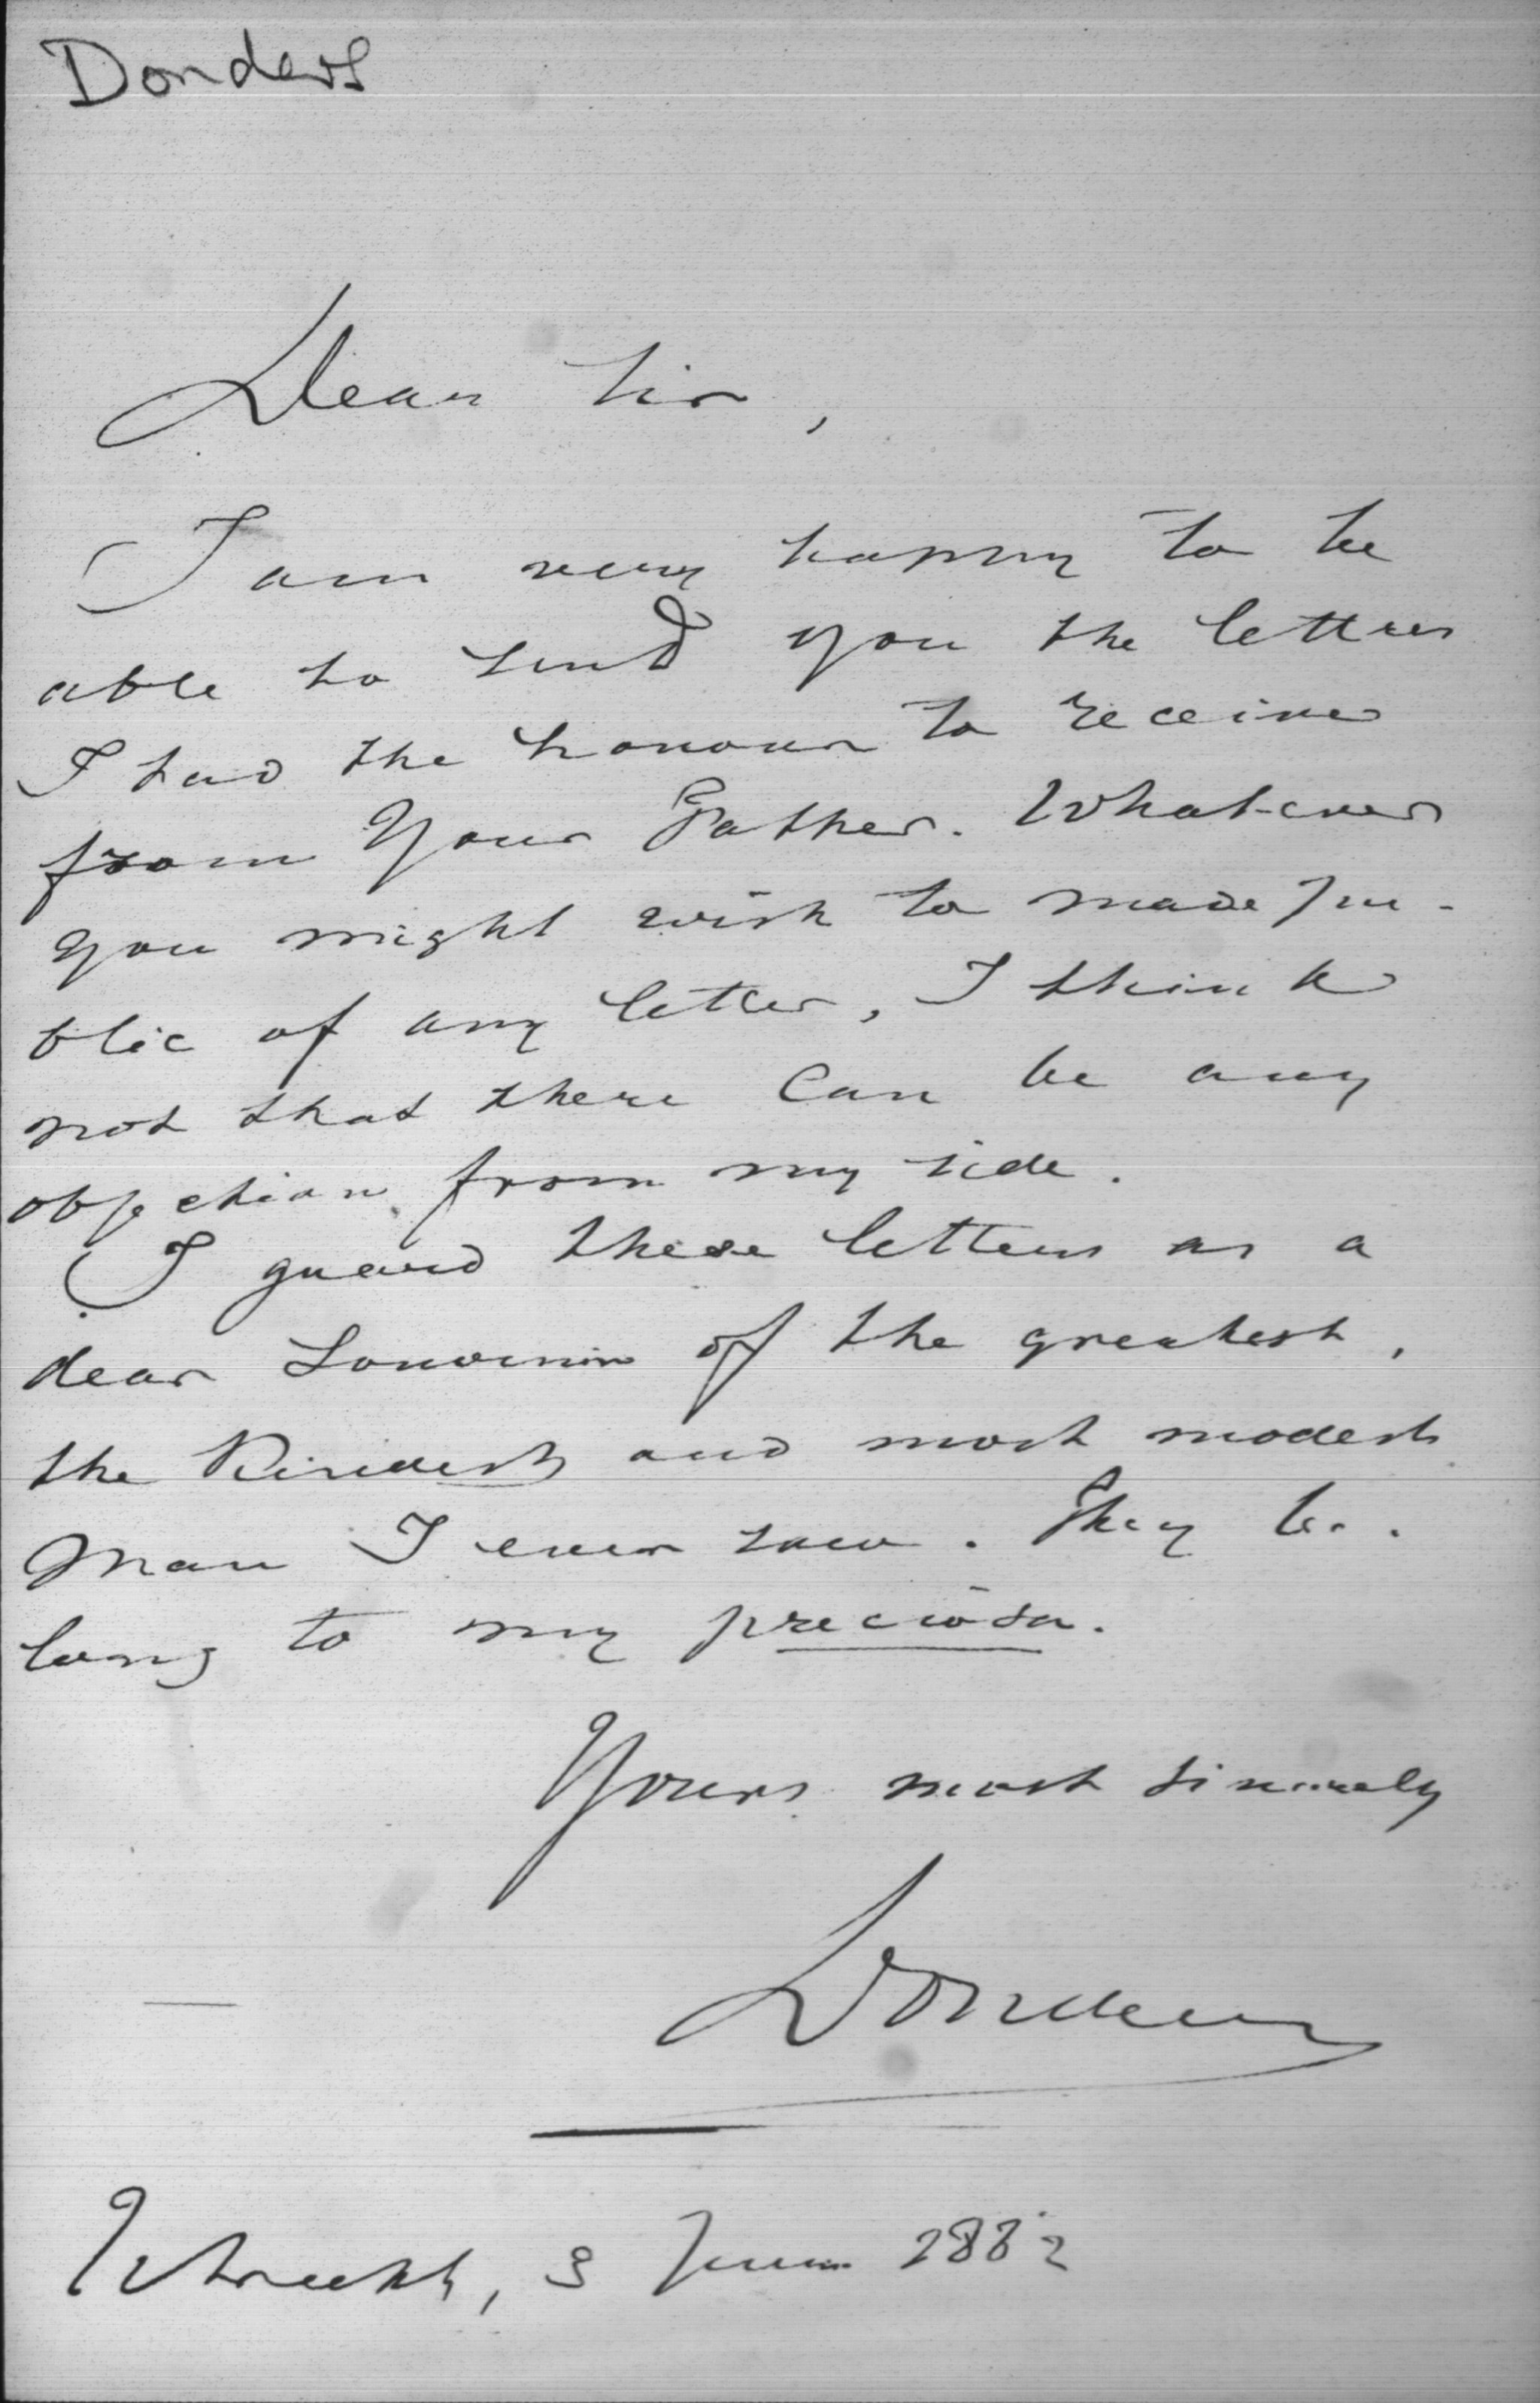 Donders
Dear Sir,
I am very happy to be
able to send you the letters
I had the honour to receive
from Your Father. Whatever
you might wish to made pu-
blic of any letter, I think
not that there can be any
objection from my side.
I guard these letters as a
dear Souvenir of the greatest,
the kindest and most modest
Man I ever saw. They be-
long to my preciosa.
Yours most sincerely
Donders
Utrecht, 3 June 1882